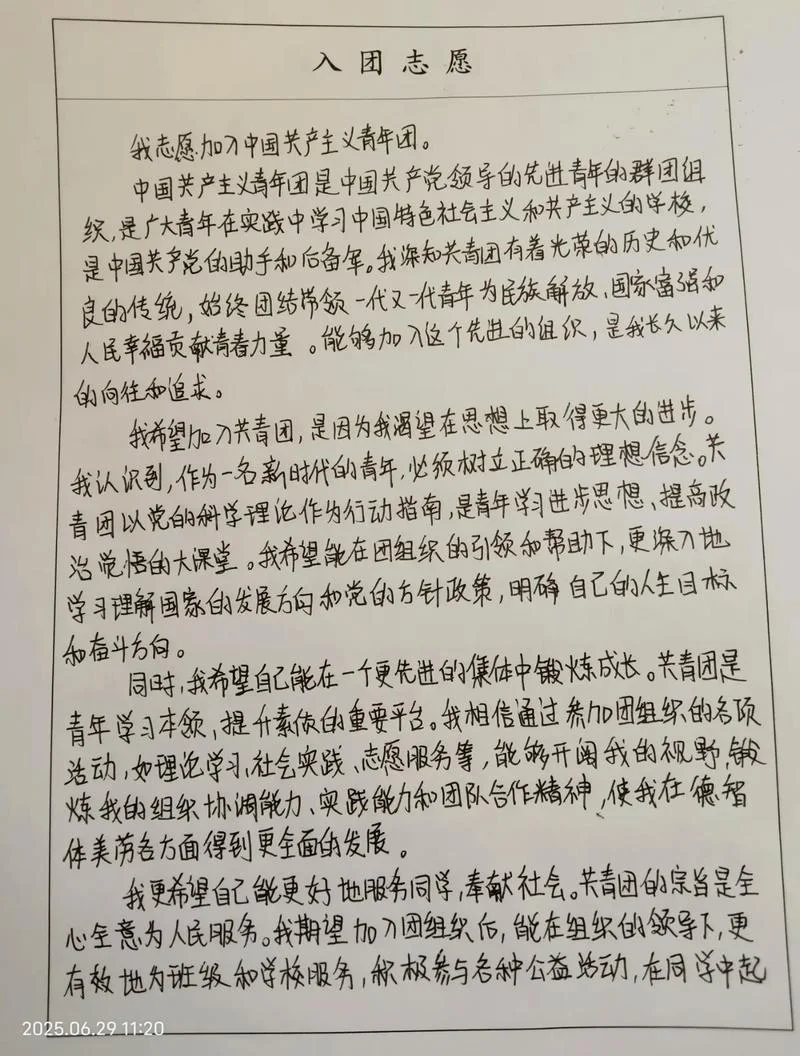 入团志愿
我志愿加入中国共产主义青年团。
中国共产主义青年团是中国共产党领导的先进青年的群团组
织,是广大青年在实践中学习中国特色社会主义和共产主义的学校,
是中国共产党的助手和后备军。我深知共青团有着光荣的历史和优
良的传统,始终团结带领一代又一代青年为民族解放、国家富强和
人民幸福贡献青春力量。能够加入这个先进的组织,是我长久以来
的向往和追求。
我希望加入共青团,是因为我渴望在思想上取得更大的进步。
我认识到,作为一名新时代的青年,必须树立正确的理想信念。共
青团以党的科学理论作为行动指南,是青年学习进步思想、提高政
治觉悟的大课堂。我希望能在团组织的引领和帮助下,更深入地
学习理解国家的发展方向和党的方针政策,明确自己的人生目标
和奋斗方向。
同时,我希望自己能在一个更先进的集体中锻炼成长。共青团是
青年学习本领,提升素质的重要平台。我相信通过参加团组织的各项
活动,如理论学习、社会实践、志愿服务等,能够开阔我的视野,锻
炼我的组织协调能力、实践能力和团队合作精神,使我在德智
体美劳各方面得到更全面的发展。
我更希望自己能更好地服务同学,奉献社会。共青团的宗旨是全
心全意为人民服务。我期望加入团组织后,能在组织的领导下,更
有效地为班级和学校服务,积极参与各种公益活动,在同学中起
2025.06.29 11:20